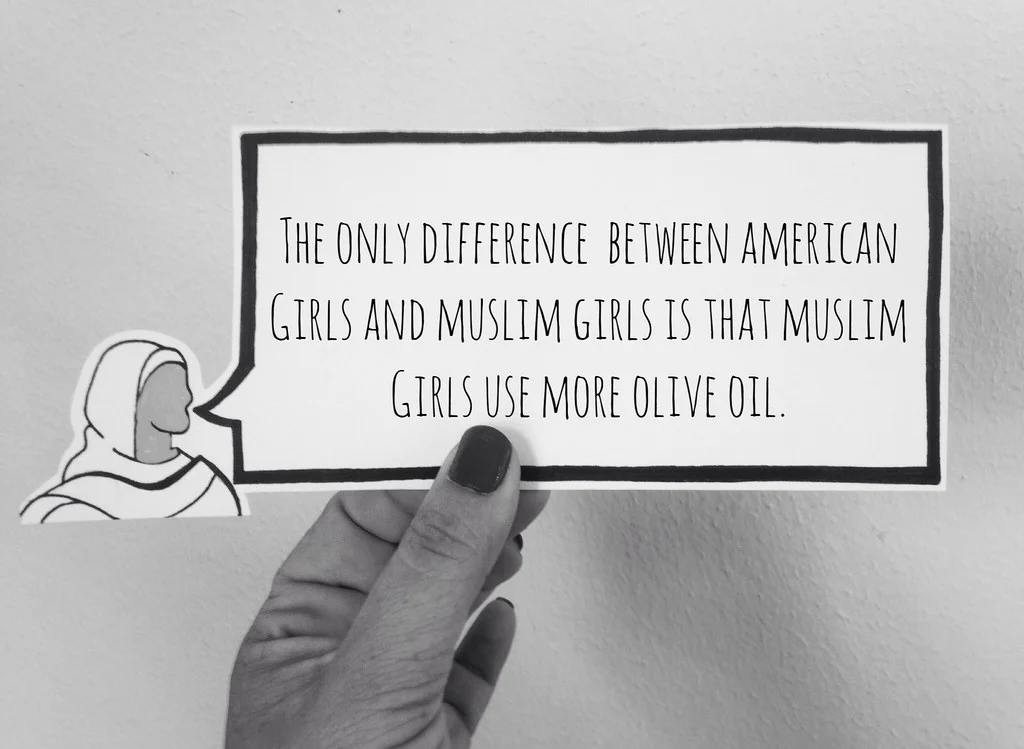 The only difference between American
Girls and Muslim girls is that Muslim
Girls use more olive oil.